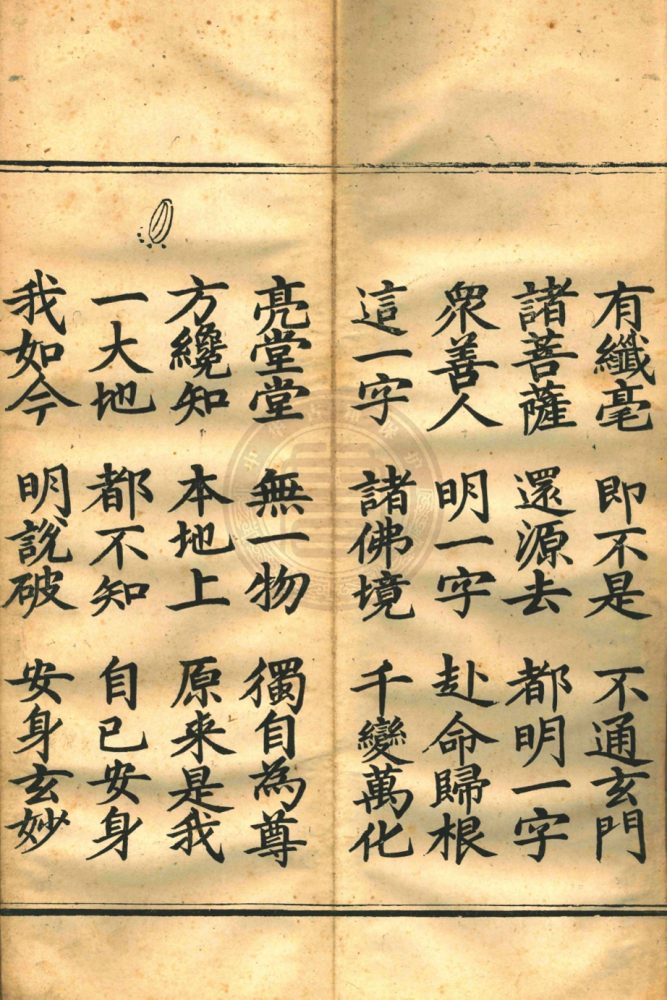 有纖毫 即不是 不通玄門
諸菩薩 還源去 都明一字
衆善人 明一字 赴命歸根
這一字 諸佛境 千變萬化
亮堂堂 無一物 獨自為尊
方纔知 本地上 原来是我
一大地 都不知 自己安身
我如今 明說破 安身玄妙